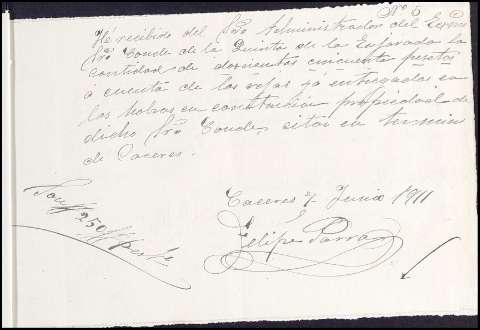 Nº 6
He recibido del Sr. Administrador del Excmo
Sr. Conde de la Quinta de la Enjarada la
Cantidad de doscientas cincuenta pesetas
á cuenta de las rejas ya entregadas en
las en construcion propiedad de
dicho Sr. Conde, sitas en termino
de Caceres.
Caceres 7 Junio 1911
Felipe Parra
Son 250 pesetas